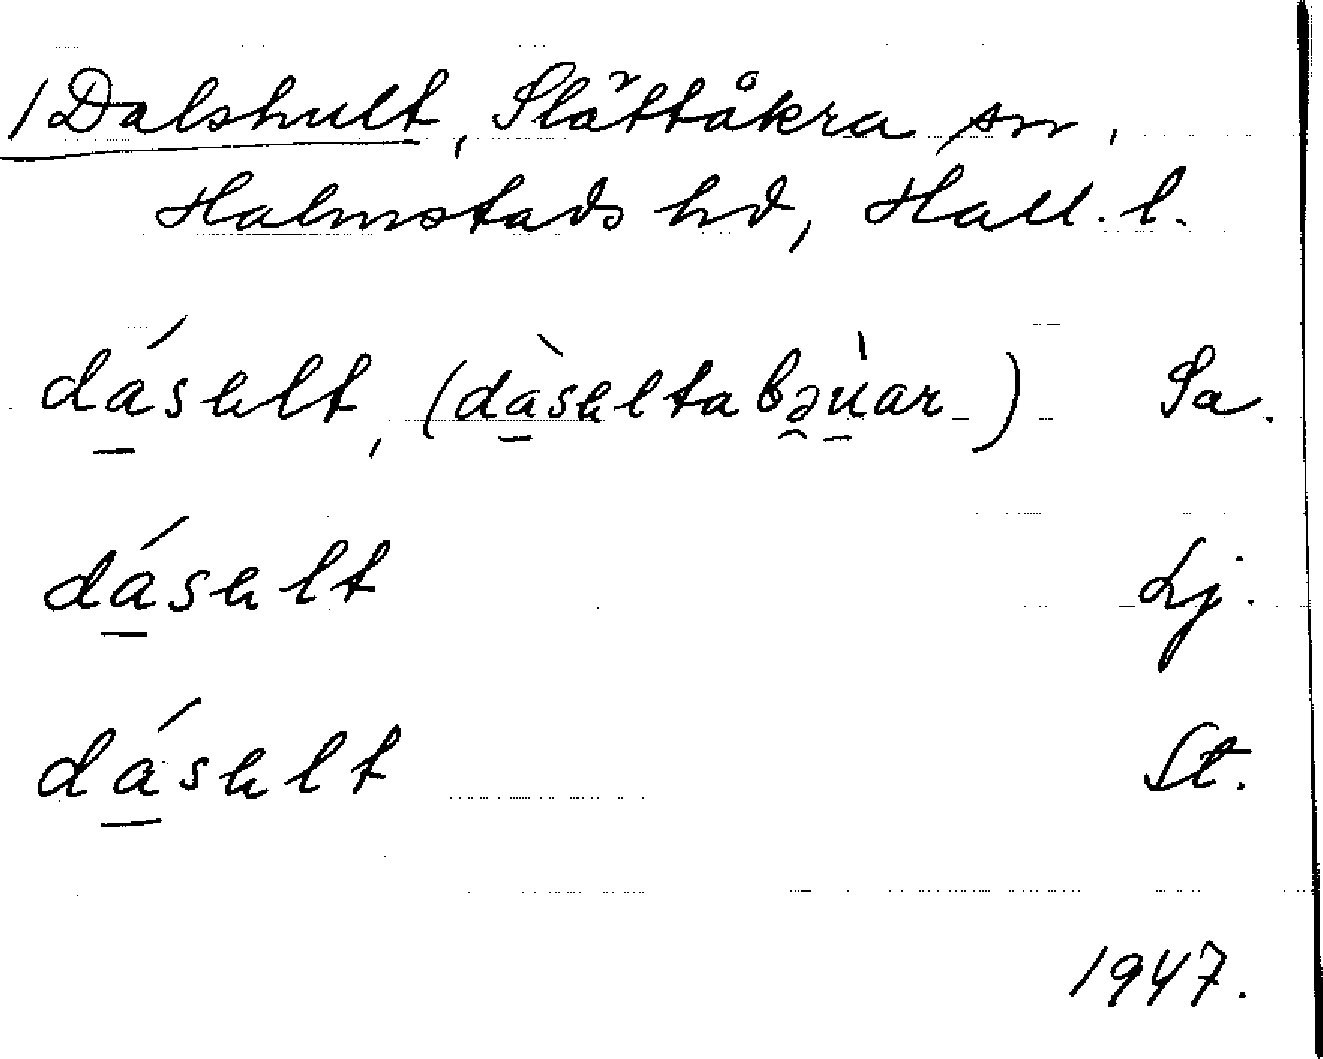 /Dalshult, Slättåkra sn,
Halmstads hd, Hall. l.
dáselt, (dàseltabəùar) Sa.
dáselt Lj.
dáselt St.
1947.